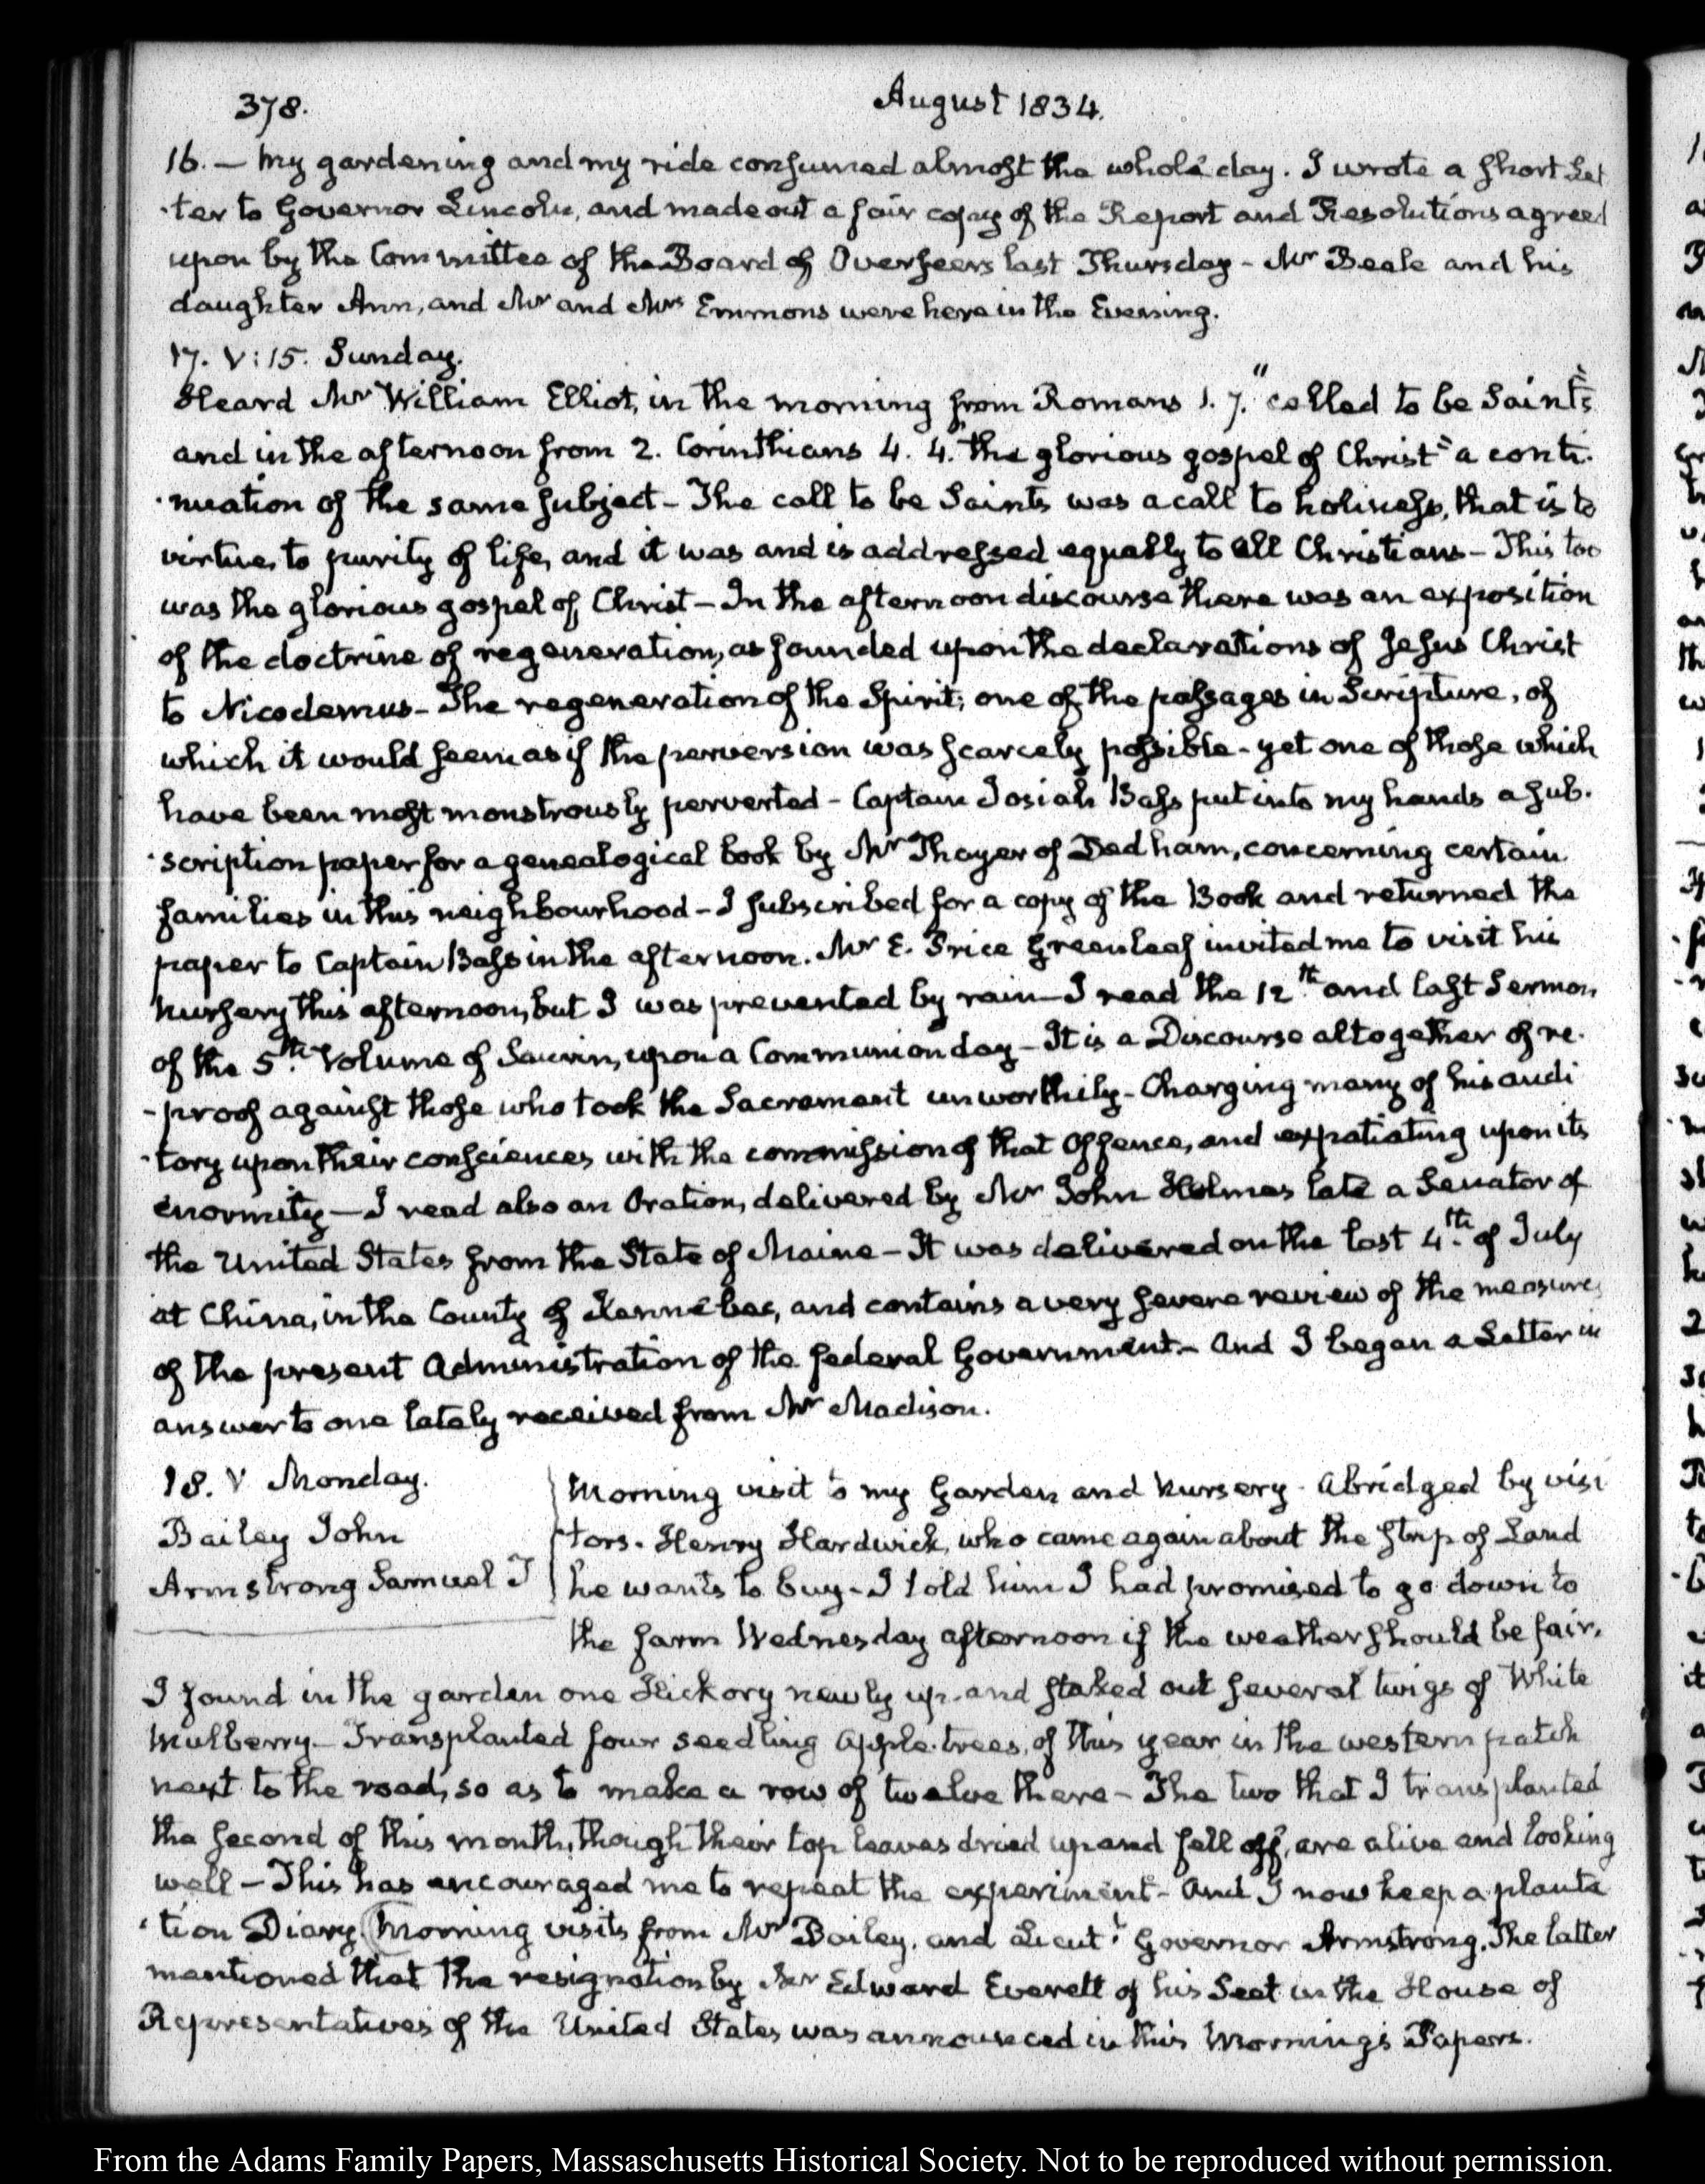 378. August 1834.
16. — My gardening and my ride consumed almost the whole day. I wrote a short Let
-ter to Governor Lincoln, and made out a fair copy of the Report and Resolutions agreed
upon by the Committee of the Board of Overseers last Thursday - Mr Beale and his
daughter Ann, and Mr and Mrs Emmons were here in the Evening.
17. V:15. Sunday.
Heard Mr William Elliot, in the morning from Romans 1. 7. "called to be Saints"
and in the afternoon from 2. Corinthians 4. 4. "the glorious gospel of Christ" a conti-
-nuation of the same subject - The call to be Saints was a call to holiness, that is to
virtue, to purity of life, and it was and is addressed equally to all Christians - This too
was the glorious gospel of Christ - In the afternoon discourse there was an exposition
of the doctrine of regeneration, as founded upon the declarations of Jesus Christ
to Nicodemus - The regeneration of the Spirit; one of the passages in Scripture, of
which it would seem as if the perversion was scarcely possible - yet one of those which
have been most monstrously perverted - Captain Josiah Bass put into my hands a sub-
-scription paper for a genealogical book by Mr Thayer of Dedham, concerning certain
families in this neighbourhood - I subscribed for a copy of the Book and returned the
paper to Captain Bass in the afternoon. Mr E. Price Greenleaf invited me to visit his
nursery this afternoon, but I was prevented by rain - I read the 12th and last Sermon
of the 5th Volume of Saurin, upon a Communion day - It is a Discourse altogether of re-
-proof against those who took the Sacrament unworthily - Charging many of his audi
-tory upon their consciences with the commission of that Offence, and expatiating upon its
enormity — I read also an Oration, delivered by Mr John Holmes late a Senator of
the United States from the State of Maine - It was delivered on the last 4th of July
at China, in the County of Kennebec, and contains a very severe review of the measures
of the present Administration of the federal Government - And I began a Letter in
answer to one lately received from Mr Madison.
18. V Monday.
Bailey John
Armstrong Samuel T
Morning visit to my Garden and Nursery - Abridged by visi
-tors. Henry Hardwick, who came again about the strip of Land
he wants to buy - I told him I had promised to go down to
the farm Wednesday afternoon if the weather should be fair.
I found in the garden one Hickory newly up - and staked out several twigs of White
Mulberry - Transplanted four seedling Apple-trees, of this year in the western patch
next to the road, so as to make a row of twelve there - The two that I transplanted
the second of this month, though their top leaves dried up and fell off, are alive and looking
well - This has encouraged me to repeat the experiment - And I now keep a planta
-tion Diary. Morning visits from Mr Bailey, and Lieutt Governor Armstrong. The latter
mentioned that the resignation by Mr Edward Everett of his Seat in the House of
Representatives of the United States was announced in this Morning's Papers.
From the Adams Family Papers, Massaschusetts Historical Society. Not to be reproduced without permission.